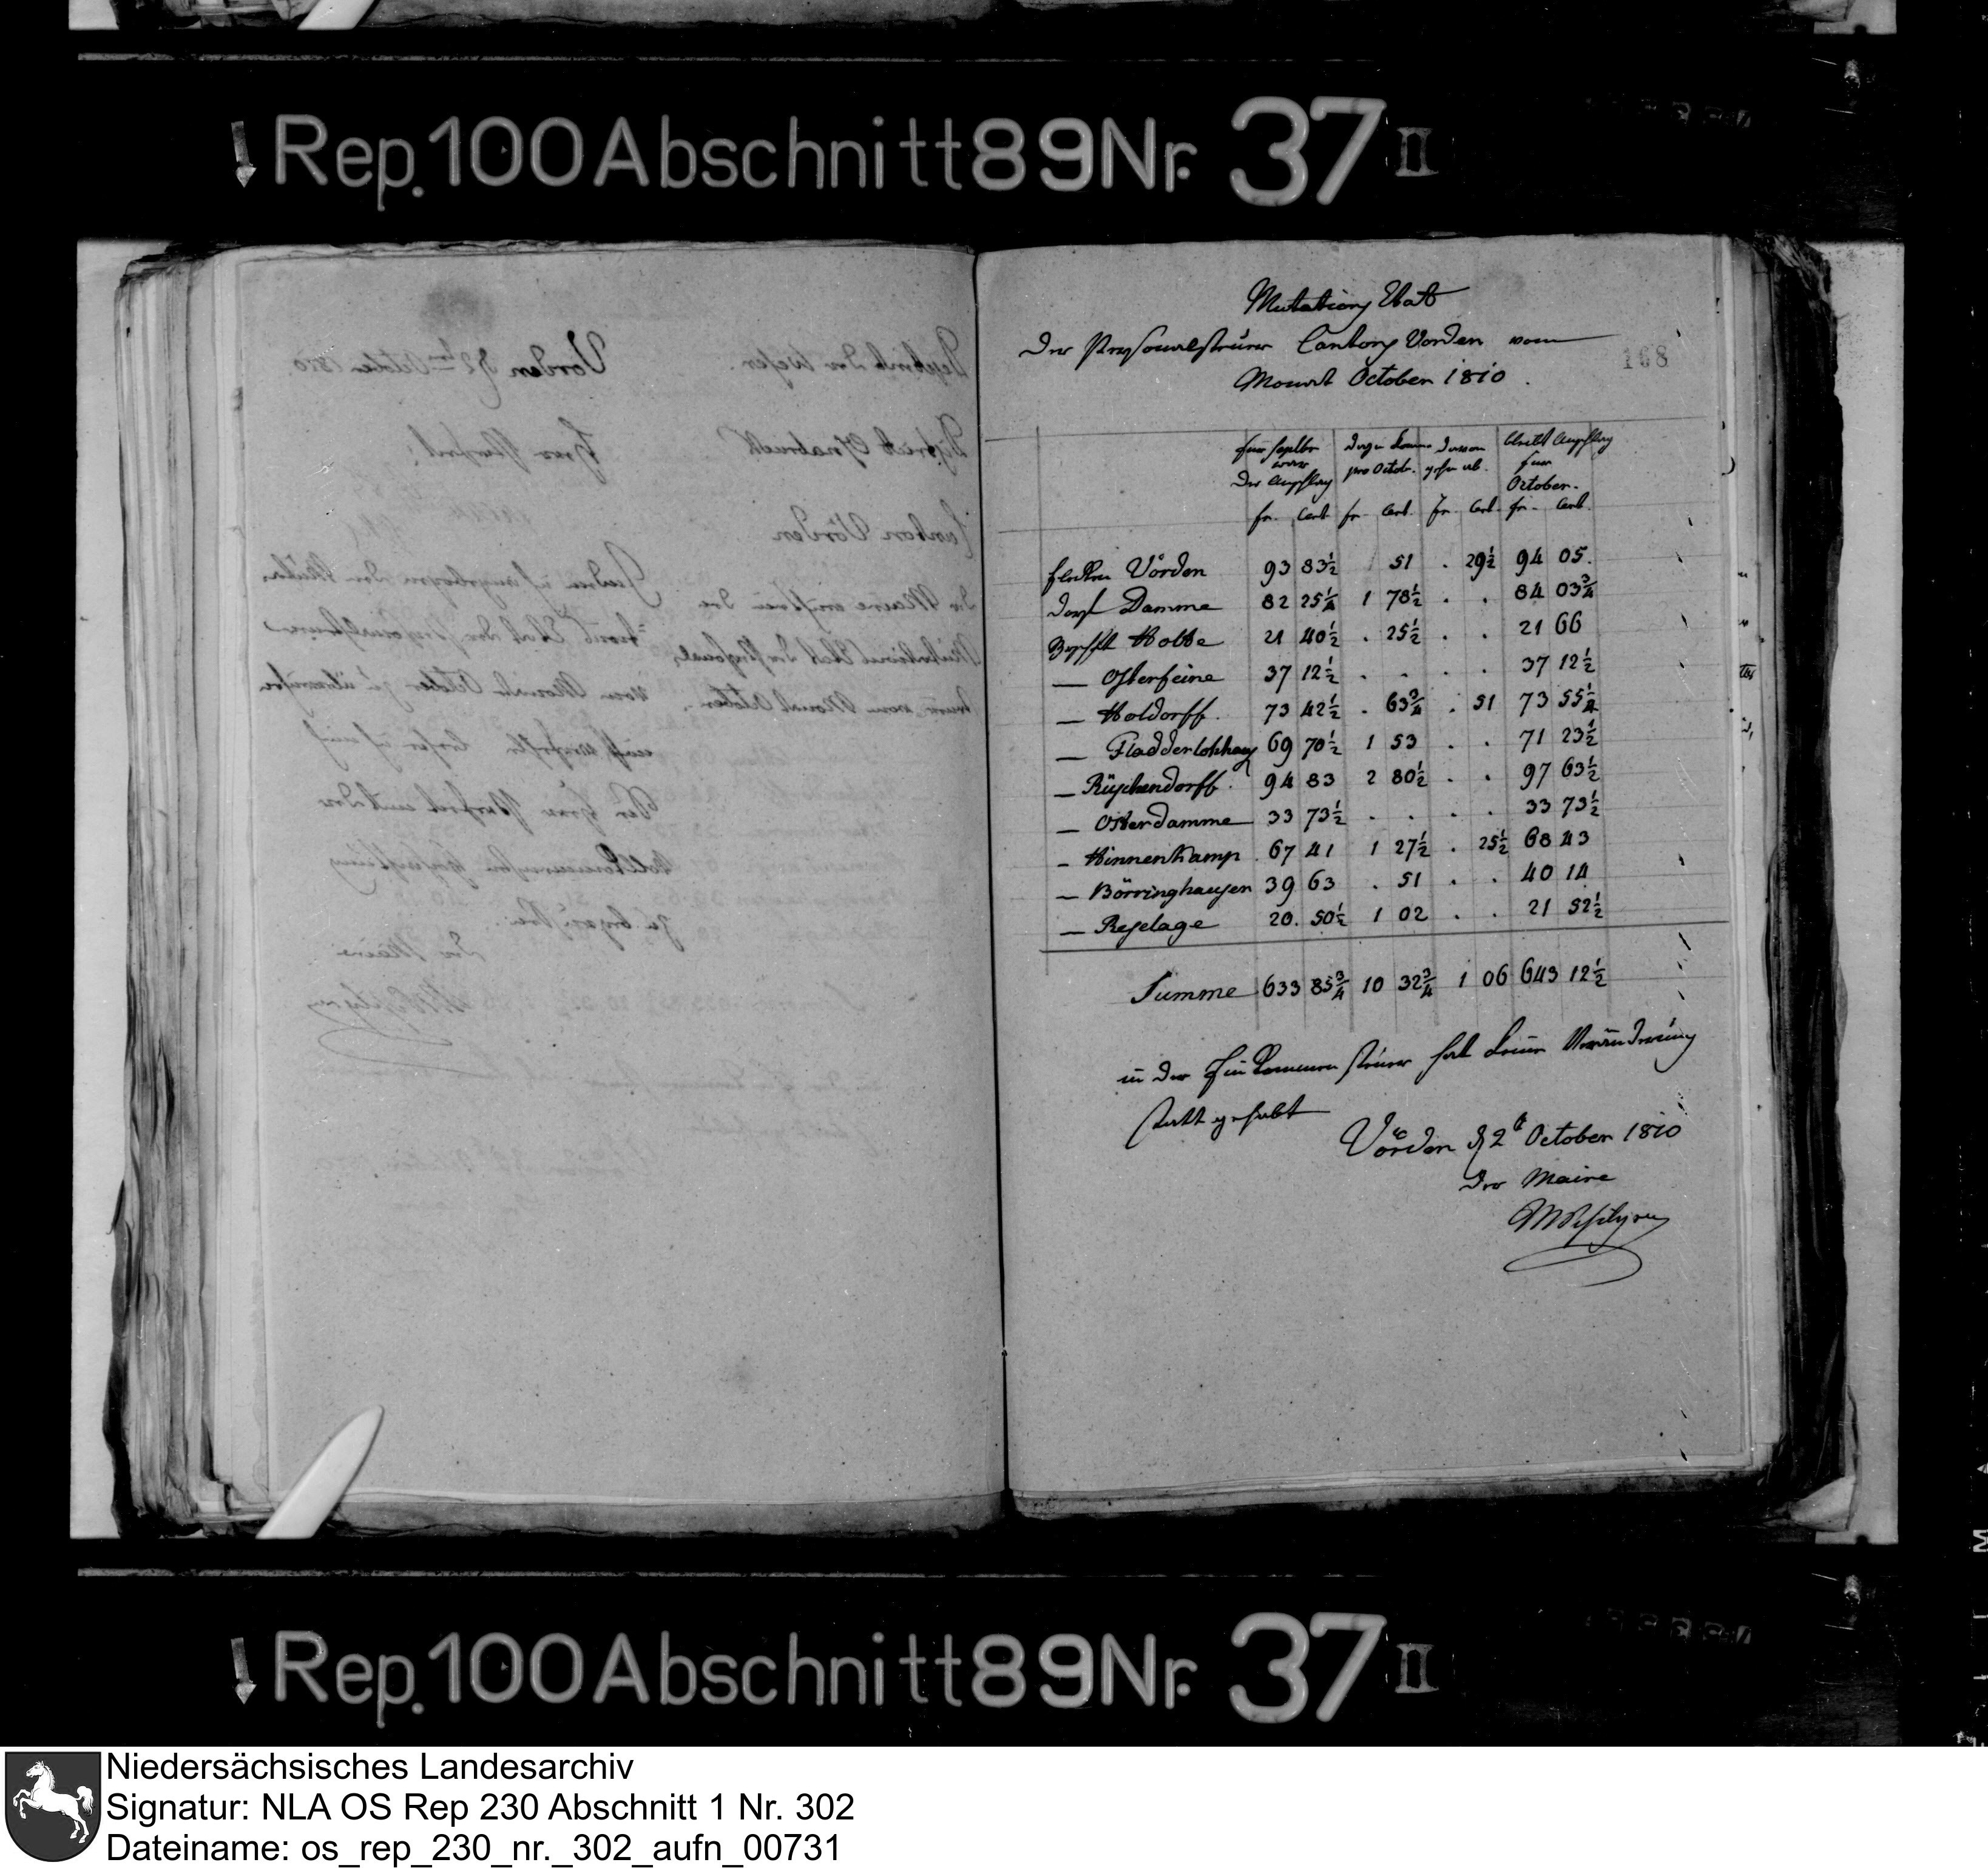 Rep. 100 Abschnitt 89 Nr. 37 II
168
Mutations Etat
der Personalsteuer Cantons Vörden vom
Monat October 1810.
für Septbr war der Anschlag
dazu kommen pro Octobr.
davon gehen ab.
bleibt Anschlag für October.
fr. Cent fr Cent. fr. Cent fr. Cent.
Flecken Vörden 93 83½ 51 . 29½ 94 05.
Dorf Damme 82 25¼ 1 78½ . . 84 03¾
Bauerschft Holte 21 40½ . 25½ . . 21 66
— Osterfeine 37 12½ . . . . 37 12½
— Holdorff. 73 42½ . 63¾ . 51 73 55¼
— Fladderlohhaus 69 70½ 1 53 . . 71 23½
— Rüschendorff. 94 83 2 80½ . . 97 63½
— Osterdamme 33 73½ . . . . 33 73½
— Hinnenkamp 67 41 1 27½ . 25½ 68 43
— Börringhausen 39 63 . 51 . . 40 14
— Reselage 20. 50½ 1 02 . . 21 52½
Summe 633 85¾ 10 32¾ 1 06 643 12½
in der Einkommensteuer hat keine Veränderung
statt gehabt
Vörden d 2t October 1810
Der Maire
Rep. 100 Abschnitt 89 Nr. 37 II
Niedersächsisches Landesarchiv
Signatur: NLA OS Rep 230 Abschnitt 1 Nr. 302
Dateiname: os_rep_230_nr._302_aufn_00731